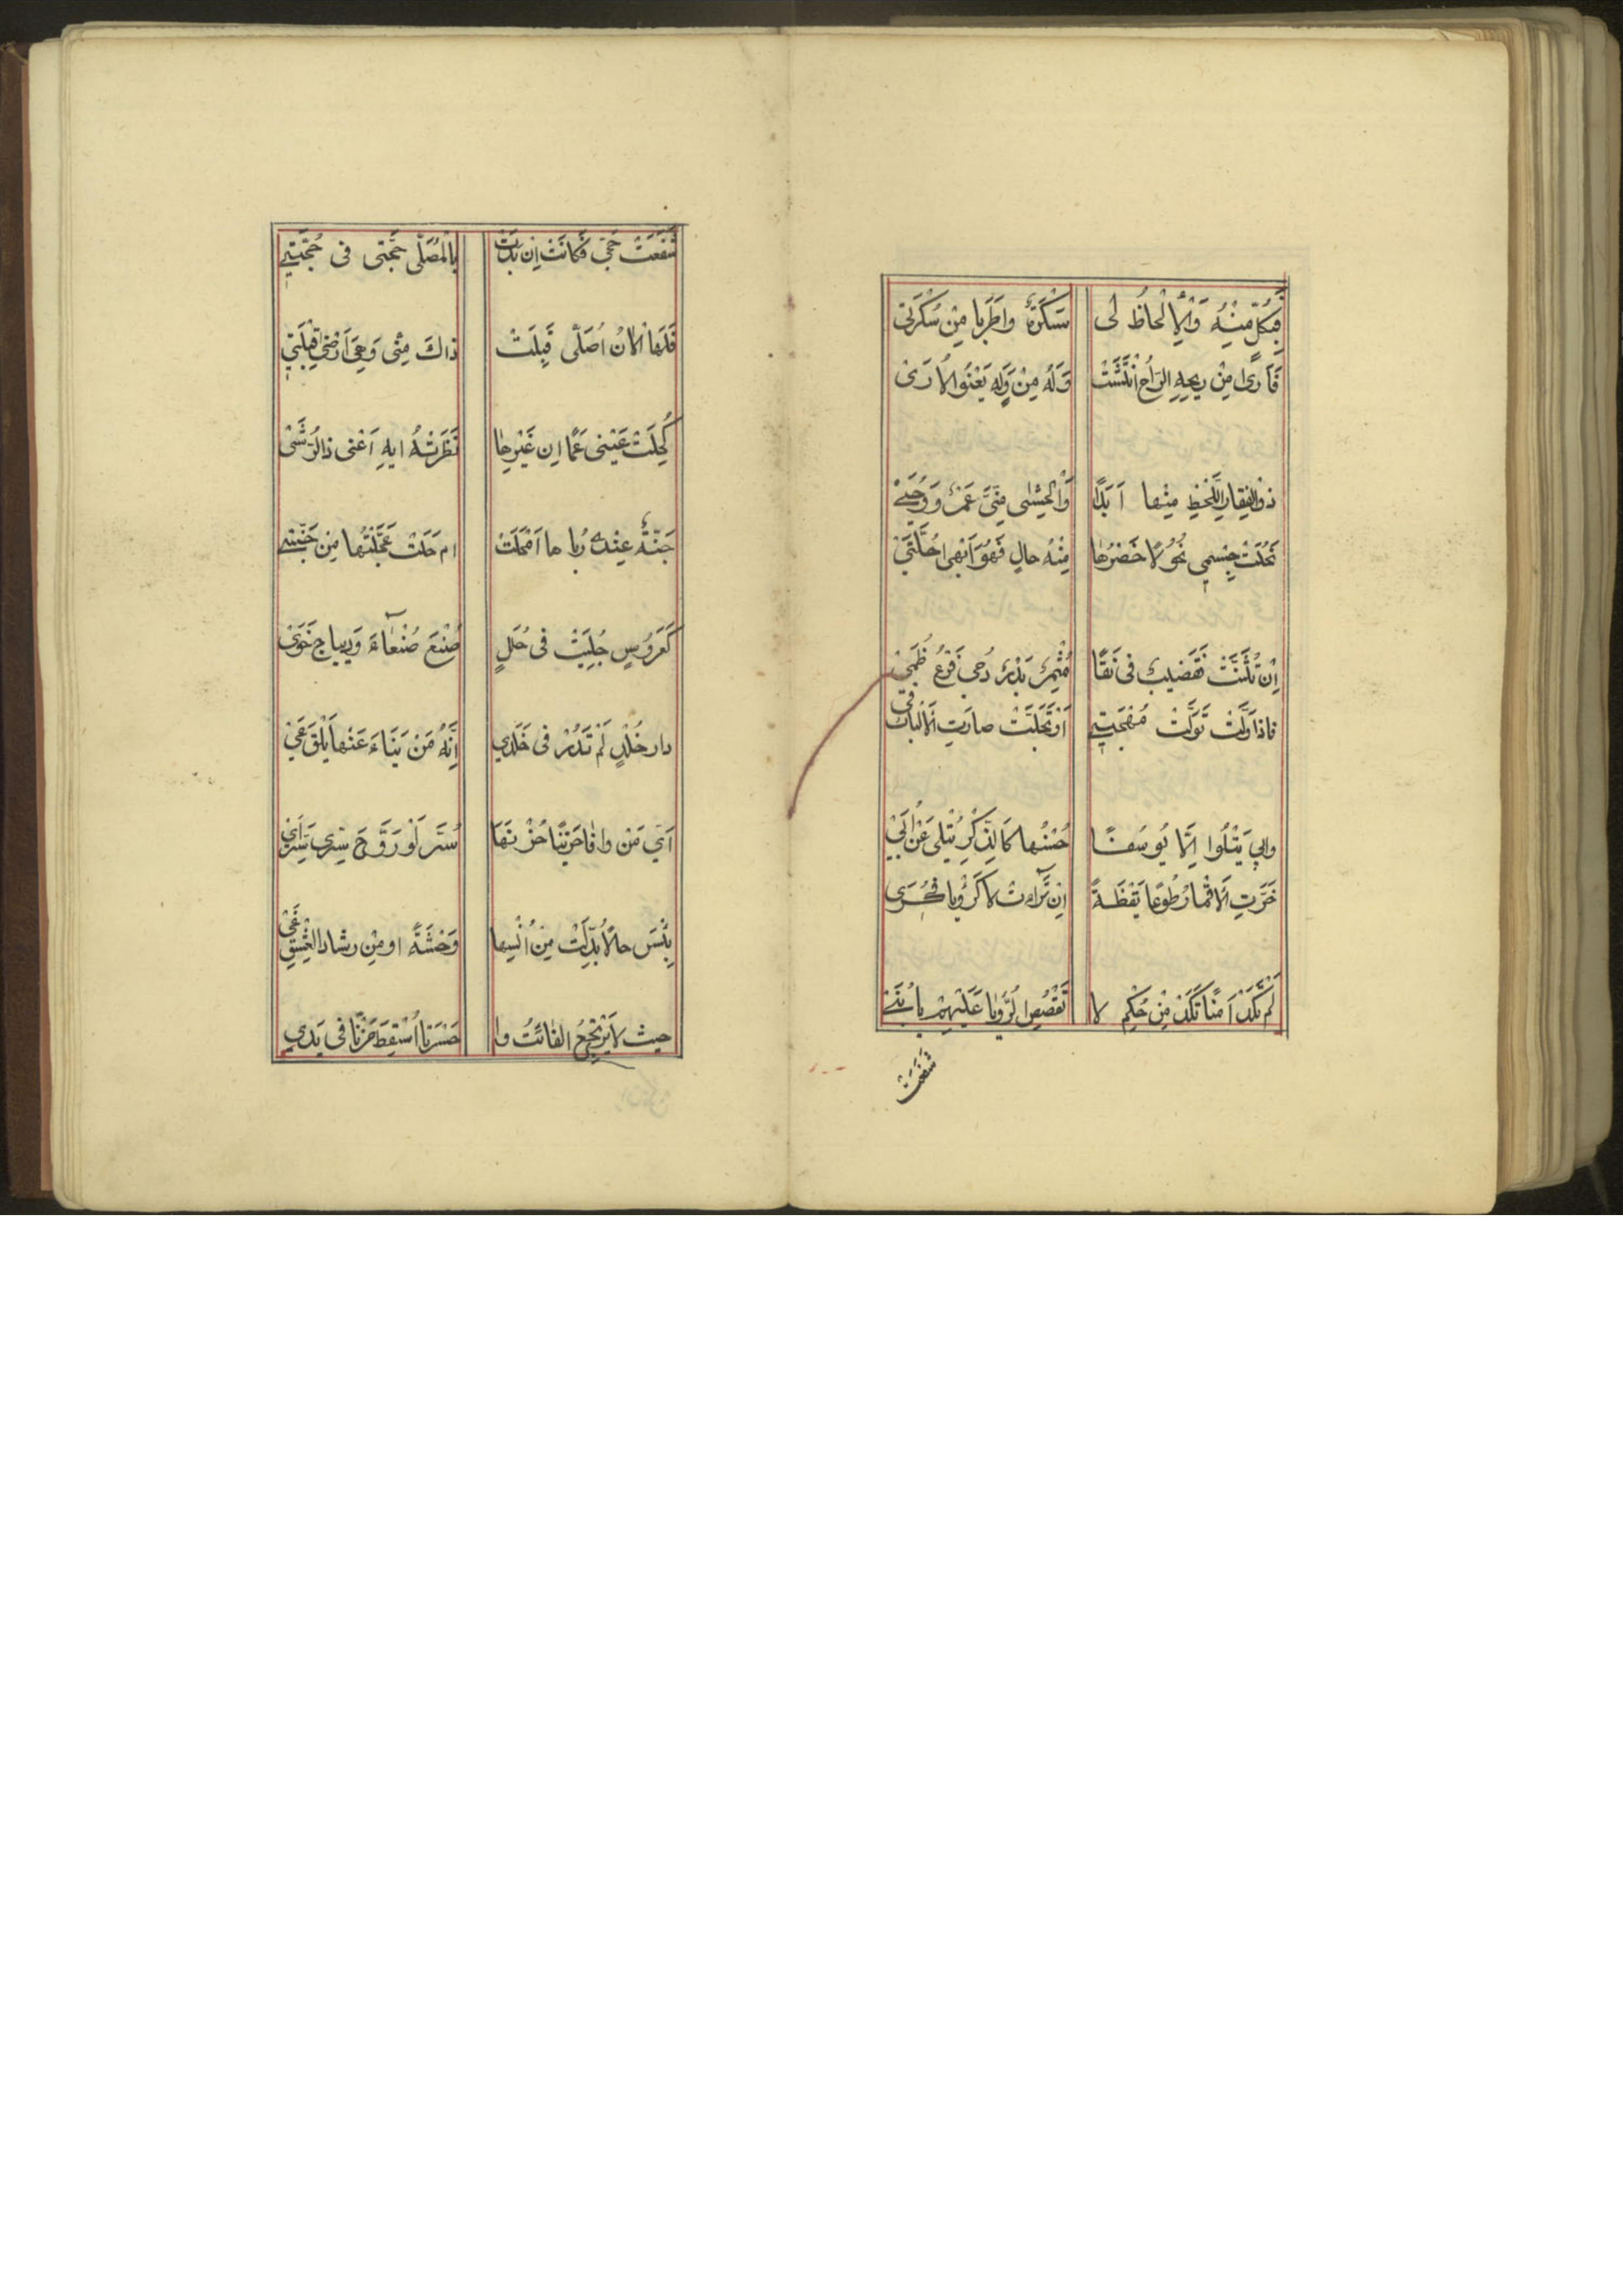 فَبِكُلٍّ مِنْهُ وَالْاَلْحَاظُ لى سَكْرَةٌ واطَرَبا مِنْ سُكْرَتَىْ
فَاَرىٰ مِنْ رِيحِهِ الرَاحَ انْتَشَتْ وَلَهُ مِنْ وَلَهٍ يَعْنُوا الاُرَىْ
ذوالفِقارِ اللَّحْظِ مِنْها اَبَدًا وَالْحَشٰى مِنِّىَ عَمْرٌو وَحُيَىْ
نَحَلَتْ جِسْمِي نُحُولًا خَصْرُهٰا مِنْهُ حالٍ فَهُوَ اَبْهى حُلَّتَىْ
اِنْ تَثَنَّتْ فَقَضيبٌ فى نَقًا مُثْمِرٌ بَدْرَ دُجى فَرْعِ ظُمَىْ
فاذا وَلَّتْ تَوَلَّتْ مُهْجَتِي اَوْ تَجَلَّتْ صارَتِ الْاَلْبابُ فَىْ
وابى يَتْلُوا اِلّا يُوسُفًا حُسْنُها كَالذِّكْرِ يُتْلى عَنْ اُبَىْ
خَرَّتِ الْاَقْمارُ طَوْعًا يَقْظَةً اِنْ تَرٰاءَتْ لا كَرُؤْيا فى كُرَى
لَمْ تَكَدْ اَمْنًا تُكَدْ مِنْ حُكْمِ لا تَقْصُصِ الرُّؤْيا عَلَيْهِمْ يا بُنَىْ
شَفَعَتْ
شَفَعَتْ حَجّى فَكانَتْ اِنْ بَدَتْ بِالْمُصَلّى حُجَّتى فى حُجَّتِي
فَلَهَا الْاٰنَ اُصَلّى قَبِلَتْ ذاكَ مِنّى وَهِىَ اَرْضٰى قِبْلَتَي
كُحِلَتْ عَيْنى عَمًا اِنْ غَيْرَها نَظَرَتْهُ ايهِ اَغْنى ذا الرُّشَىْ
جَنَّةٌ عِنْدى رُباها اَمْحَلَتْ ام حَلَتْ عُجِّلْتُها مِنْ جَنَّتَي
كَعَرُوسٍ جُلِيَتْ فى حُلَلٍ صُنْعَ صَنْعٰاءَ وَديباجِ خُوَىْ
دار خُلْدٍ لَمْ تَدُرْ فى خَلَدِي اِنَّهُ مَنْ يَنَاءَ عَنْها يَلْقَ غَىْ
اَىّ مَنْ وافٰا حَزينًا حُزْنَهَا سُرَّ لَوْ رَوَّحَ سِرّى سِرُّ اَىْ
بِئْسَ حالًا بُدِّلَتْ مِنْ اُنْسِها وَحْشَةً او مِنْ رشاد العَيْشِ غَىْ
حيث لا يَرْتَجِعُ الفٰائتُ وا حَسْرَتا اُسْقِطَ حُزْنًا فى يَدي